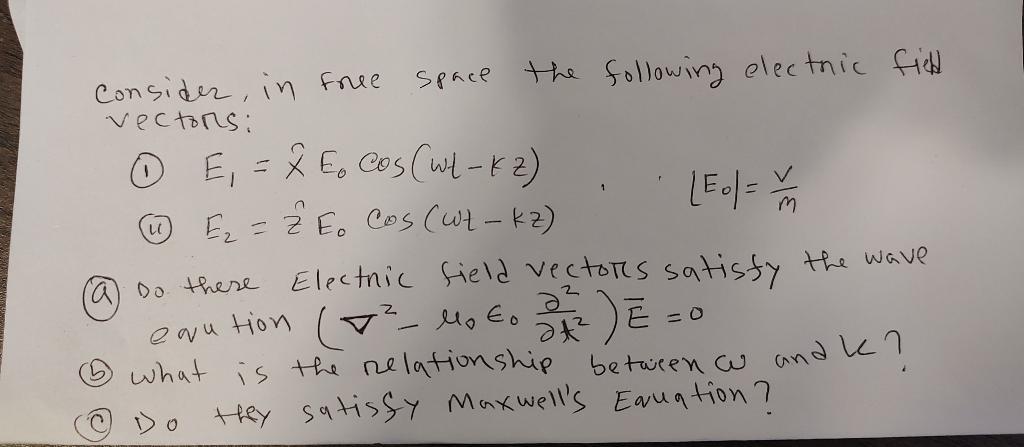 Consider, in free space the following electric field
vectors:
(i) E₁ = x̂ E₀ cos(ωt - kz)
|E₀| = V/m
(ii) E₂ = ẑ E₀ cos(ωt - kz)
(a) Do these Electric field vectors satisfy the wave
eqution (∇² - μ₀ ε₀ ∂²/∂t²) Ē = 0
(b) what is the relationship between ω and k?
(c) Do they satisfy Maxwell's Equation?